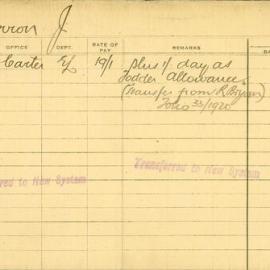 rron J.
OFFICE DEPT. RATE OF PAY REMARKS DA
Carter EL 19/1 plus 1/ day as
Fodder Allowance
(Transfer from R. Bryan)
Folio 33/1920
red to New System Transferred to New System